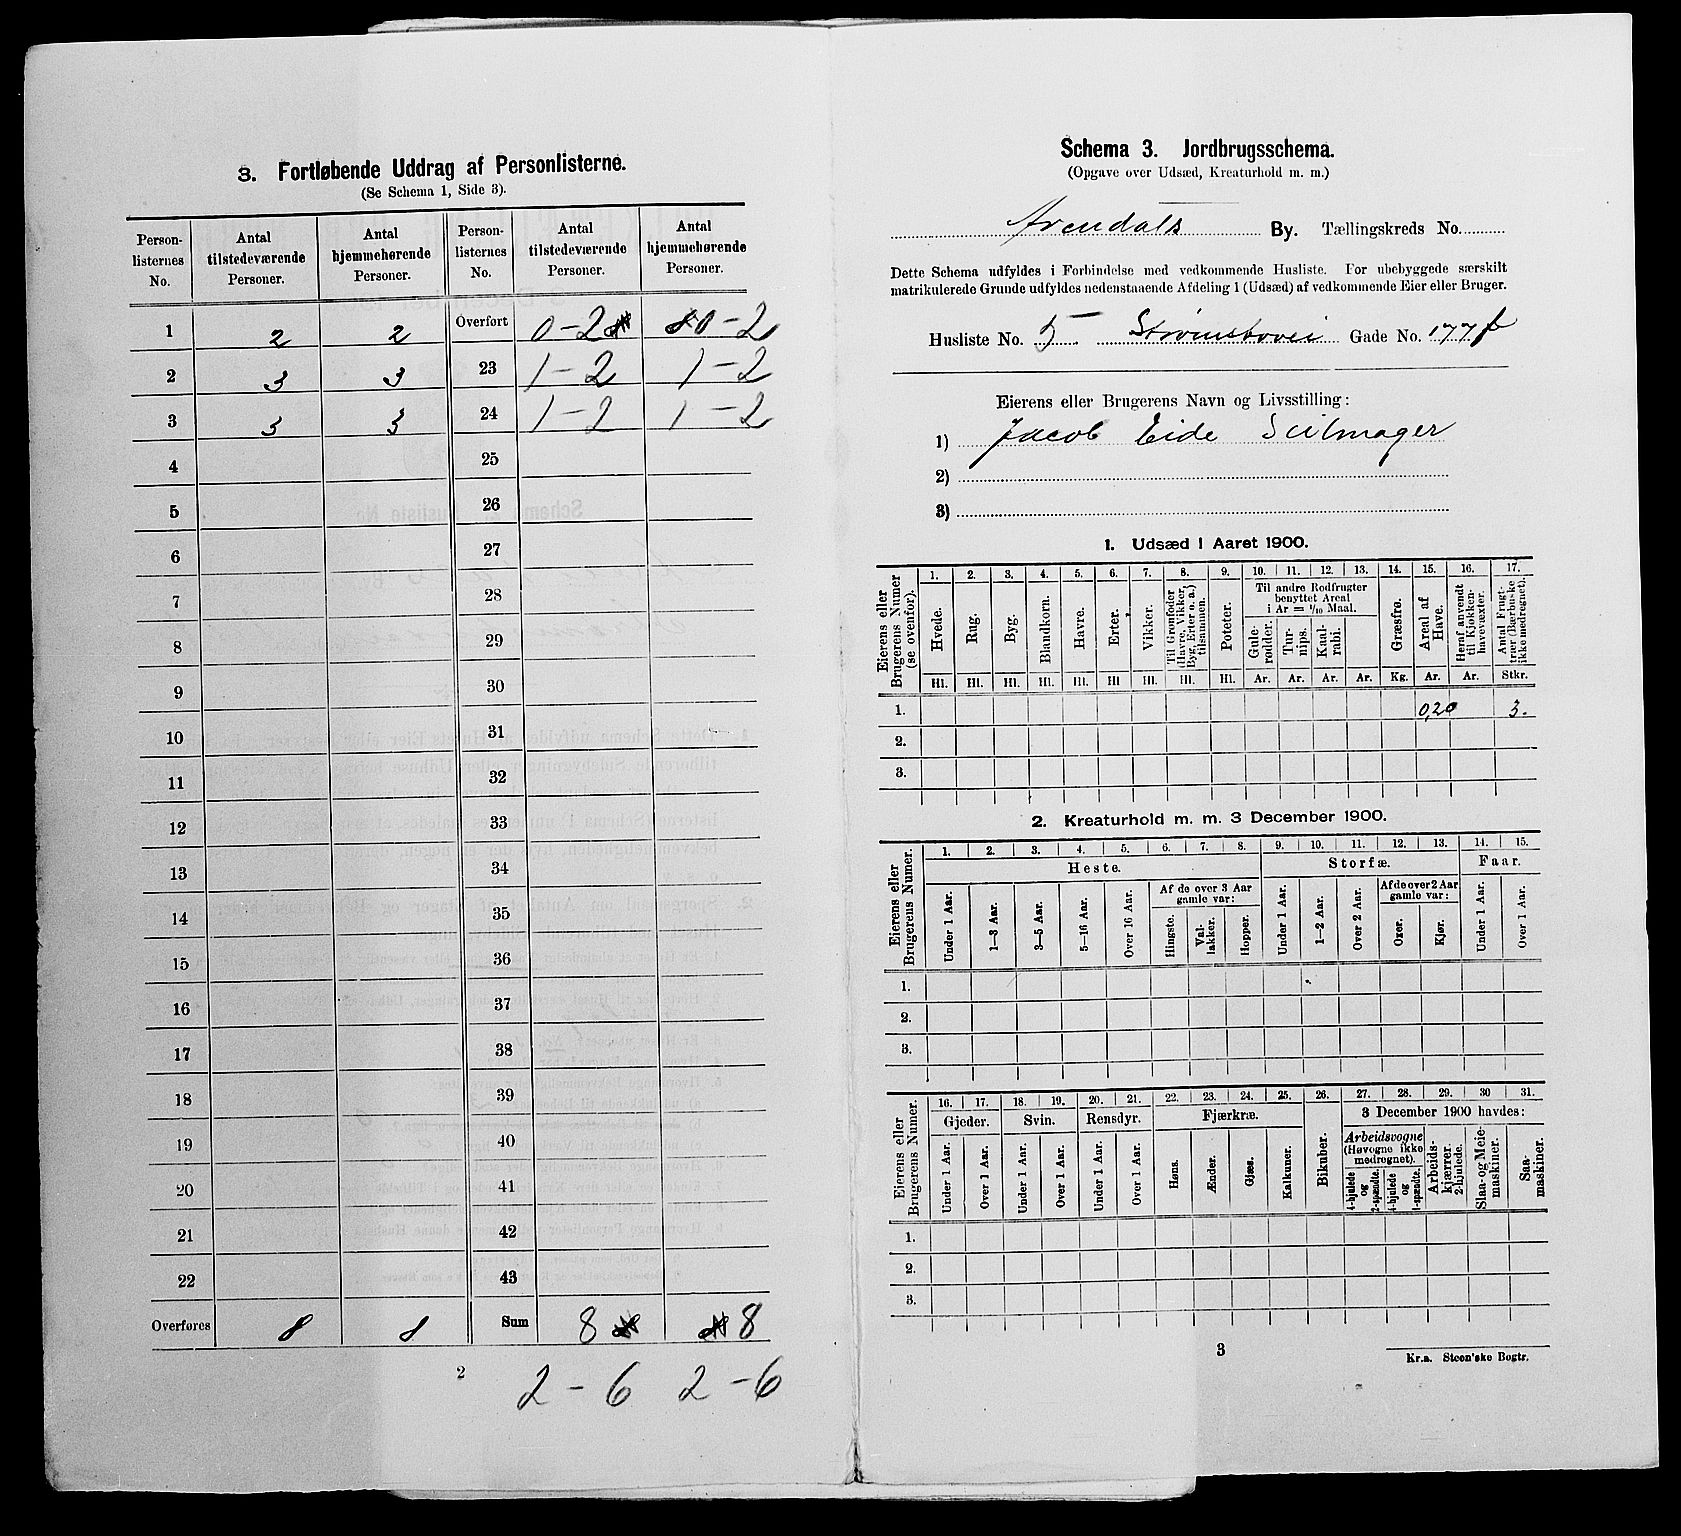 3. Fortløbende Uddrag af Personlisterne.
(Se Schema 1, Side 3).
Person-listernes No. Antal tilstedeværende Personer. Antal hjemmehørende Personer. Person-listernes No. Antal tilstedeværende Personer. Antal hjemmehørende Personer.
1 2 2 Overført 0-2 0-2
2 3 3 23 1-2 1-2
3 3 3 24 1-2 1-2
4 25
5 26
6 27
7 28
8 29
9 30
10 31
11 32
12 33
13 34
14 35
15 36
16 37
17 38
18 39
19 40
20 41
21 42
22 43
Overføres 8 8 Sum 8 8
2
2-6 2-6
Schema 3. Jordbrugsschema.
(Opgave over Udsæd, Kreaturhold m. m.)
Arendals By. Tællingskreds No.
Dette Schema udfyldes i Forbindelse med vedkommende Husliste. For ubebyggede særskilt
matrikulerede Grunde udfyldes nedenstaaende Afdeling 1 (Udsæd) af vedkommende Eier eller Bruger.
Husliste No. 5 Strømsbovei Gade No. 177f
Eierens eller Brugerens Navn og Livsstilling:
1) Jacob Eide Seilmager
2)
3)
1. Udsæd i Aaret 1900.
Eierens eller Brugerens Numer (se ovenfor).
1. 2. 3. 4. 5. 6. 7. 8. 9. 10. 11. 12. 13. 14. 15. 16. 17.
Til andre Rodfrugter benyttet Areal i Ar = 1/10 Maal.
Hvede. Rug. Byg. Blandkorn. Havre. Erter. Vikker. Til Grønfoder (Havre, Vikker, Byg, Erter o. a.) tilsammen. Poteter. Gule-rødder. Tur-nips. Kaal-rabi. Græsfrø. Areal af Have. Heraf anvendt til Kjøkken-havevæxter. Antal Frugt-trær (Bærbuske ikke medregnet).
Hl. Hl. Hl. Hl. Hl. Hl Hl. Hl. Hl. Ar. Ar. Ar. Ar. Kg. Ar. Ar. Stkr.
1. 0,20 3.
2.
3.
2. Kreaturhold m. m. 3 December 1900.
Eierens eller Brugerens Numer.
1. 2. 3. 4. 5. 6. 7. 8. 9. 10. 11. 12. 13. 14. 15.
Heste. Storfæ. Faar.
Af de over 3 Aar gamle var: Af de over 2 Aar gamle var:
Under 1 Aar. 1-3 Aar. 3-5 Aar. 5-16 Aar. Over 16 Aar. Hingste. Val-lakker. Hopper. Under 1 Aar. 1-2 Aar. Over 2 Aar. Oxer. Kjør. Under 1 Aar. Over 1 Aar.
1.
2.
3.
Eierens eller Brugerens Numer.
16. 17. 18. 19. 20. 21. 22. 23. 24. 25. 26. 27. 28. 29. 30 31.
Gjeder. Svin. Rensdyr. Fjærkræ. Bikuber. 3 December 1900 havdes:
Under 1 Aar. Over 1 Aar. Under 1 Aar. Over 1 Aar. Under 1 Aar. Over 1 Aar. Høns. Ænder. Gjæs. Kalkuner. Arbeidsvogne (Høvogne ikke medregnet). 4-hjulede og 2-spændte. 4-hjulede og 1-spændte. Arbeids-kjærrer, 2-hjulede. Slaa- og Meie-maskiner. Saa-maskiner.
1.
2.
3.
3
Kr.a. Steen'ske Bogtr.